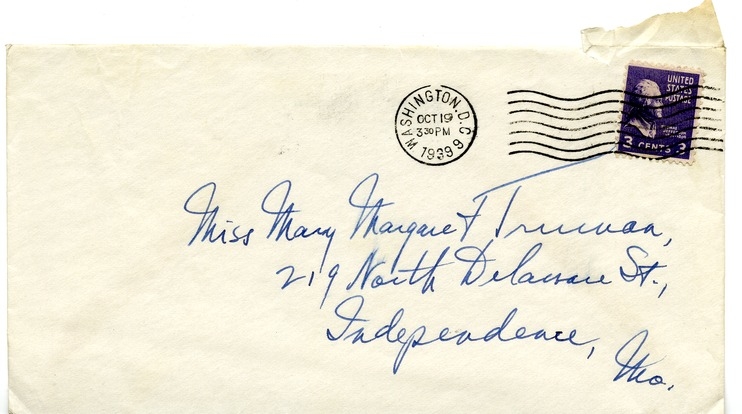 WASHINGTON, D.C.
OCT 19
3 30 PM
1939
UNITED
STATES
POSTAGE
3 CENTS 3
Miss Mary Margaret Truman,
219 North Delaware St.,
Independence,
Mo.